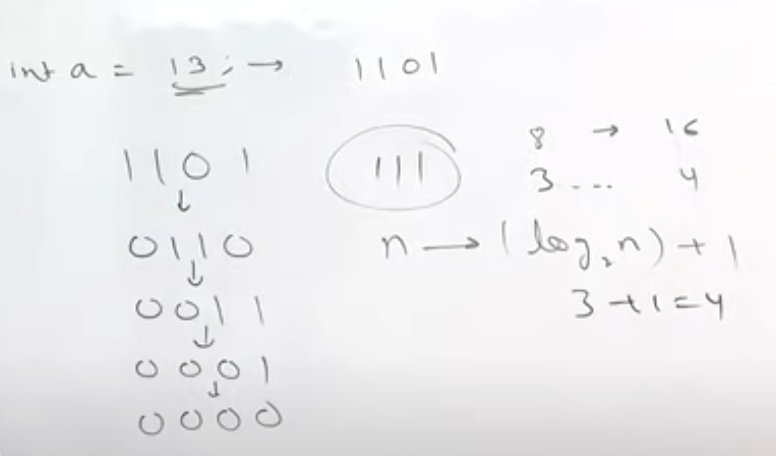 int a = 13; → 1101
1101
↓
0110
↓
0011
↓
0001
↓
0000
111
8 → 16
3 ... 4
n → (log₂n) + 1
3 + 1 = 4